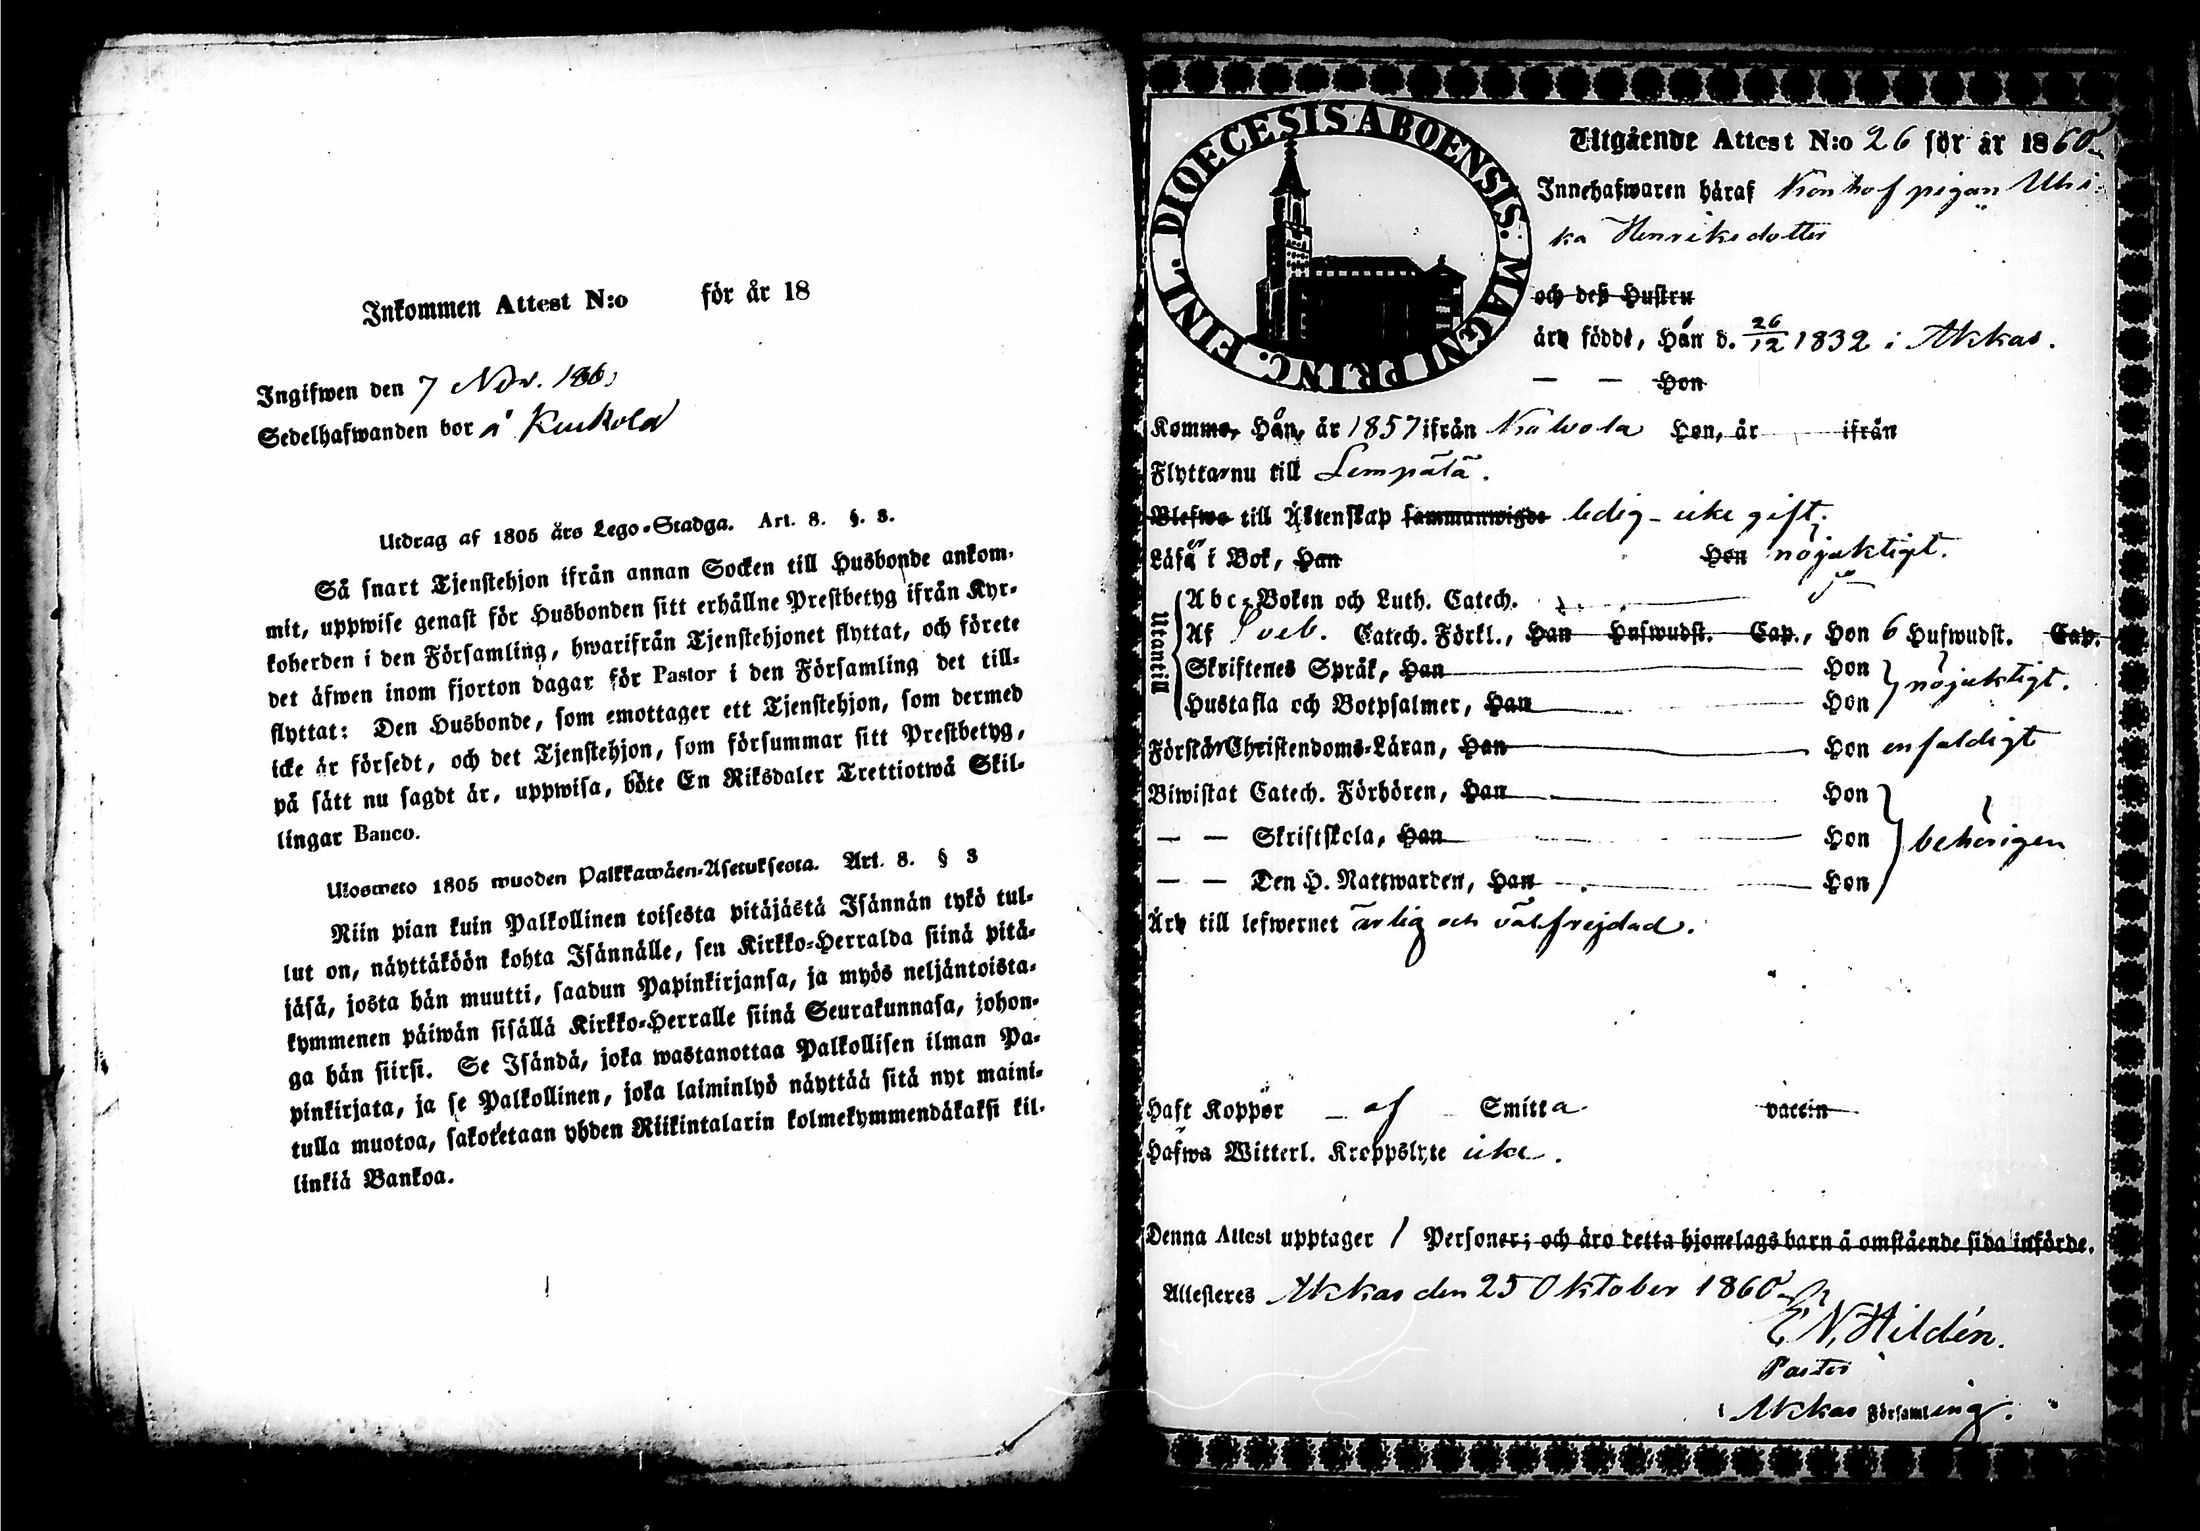 Inkommen Attest N:o för år 18
Ingifwen den 7 Nov. 186
Sedelhafwanden bor å Kuckola
Utdrag af 1805 års Lego-Stadga. Art. 8. §. 3.
Så snart Tjenstehjon ifrån annan Socken till Husbonde ankom-
mit, uppwise genast för Husbonden sitt erhållne Prestbetyg ifrån Kyr-
koherden i den Församling, hwarifrån Tjenstehjonet flyttat, och förete
det äfwen inom fjorton dagar för Pastor i den Församling det till-
flyttat: Den Husbonde, som emottager ett Tjenstehjon, som dermed
icke är försedt, och det Tjenstehjon, som försummar sitt Prestbetyg,
på sätt nu sagdt är, uppwisa, böte En Riksdaler Trettiotwå Skil-
lingar Banco.
Ulosweto 1805 wuoden Palkkawäen-Asetuksesta. Art. 8. § 3
Niin pian kuin Palkollinen toisesta pitäjästä Isännän tykö tul-
lut on, näyttäköön kohta Isännälle, sen Kirkko-Herralda siinä pitä-
jäsä, josta hän muutti, saadun Papinkirjansa, ja myös neljäntoista-
kymmenen päiwän sisällä Kirkko-Herralle siinä Seurakunnasa, johon-
ga hän siirsi. Se Isändä, joka wastanottaa Palkollisen ilman Pa-
pinkirjata, ja se Palkollinen, joka laiminlyö näyttää sitä nyt maini-
tulla muotoa, sakotetaan yhden Riikintalarin kolmekymmendäkaksi kil-
linkiä Bankoa.
DIOECESIS ABOENSIS. MAGNI PRINC. FINL.
Utgående Attest N:o 26 för år 1860
Innehafwaren häraf pigan Ulri-
ka Henriksdotter
och deß Hustru
äro födde, Hån d. 26/12 1832 i Akkas.
— — Hon
Komme, Hån, år 1857 ifrån Hon, år ifrån
Flyttar nu till Lempälä.
Blefwo till Äktenskap sammanwigde ledig - icke gift.
Läsa i Bok, Han Hon nöjaktigt.
Utantill
Abc-Boken och Luth. Catech.
Af Sveb. Catech. Förkl., Han Hufwudst. Cap., Hon 6 Hufwudst. Cap.
Skriftenes Språk, Han Hon
Hustafla och Botpsalmer, Han Hon nöjaktigt.
Förstår Christendoms-Läran, Han Hon enfaldigt
Biwistat Catech. Förhören, Han Hon
— — Skriftskola, Han Hon behörigen
— — Den H. Nattwarden, Han Hon
Äro till lefwernet ärlig och välfrejdad.
Haft Koppor af Smitta vaccin
Hafwa Witterl. Kroppslyte icke.
Denna Attest upptager 1 Personer; och äro detta hjonelags barn å omstående sida införde.
Attesteres Akkas den 25 Oktober 1860
E N Hildén.
Pastor
i Akkas Församling.